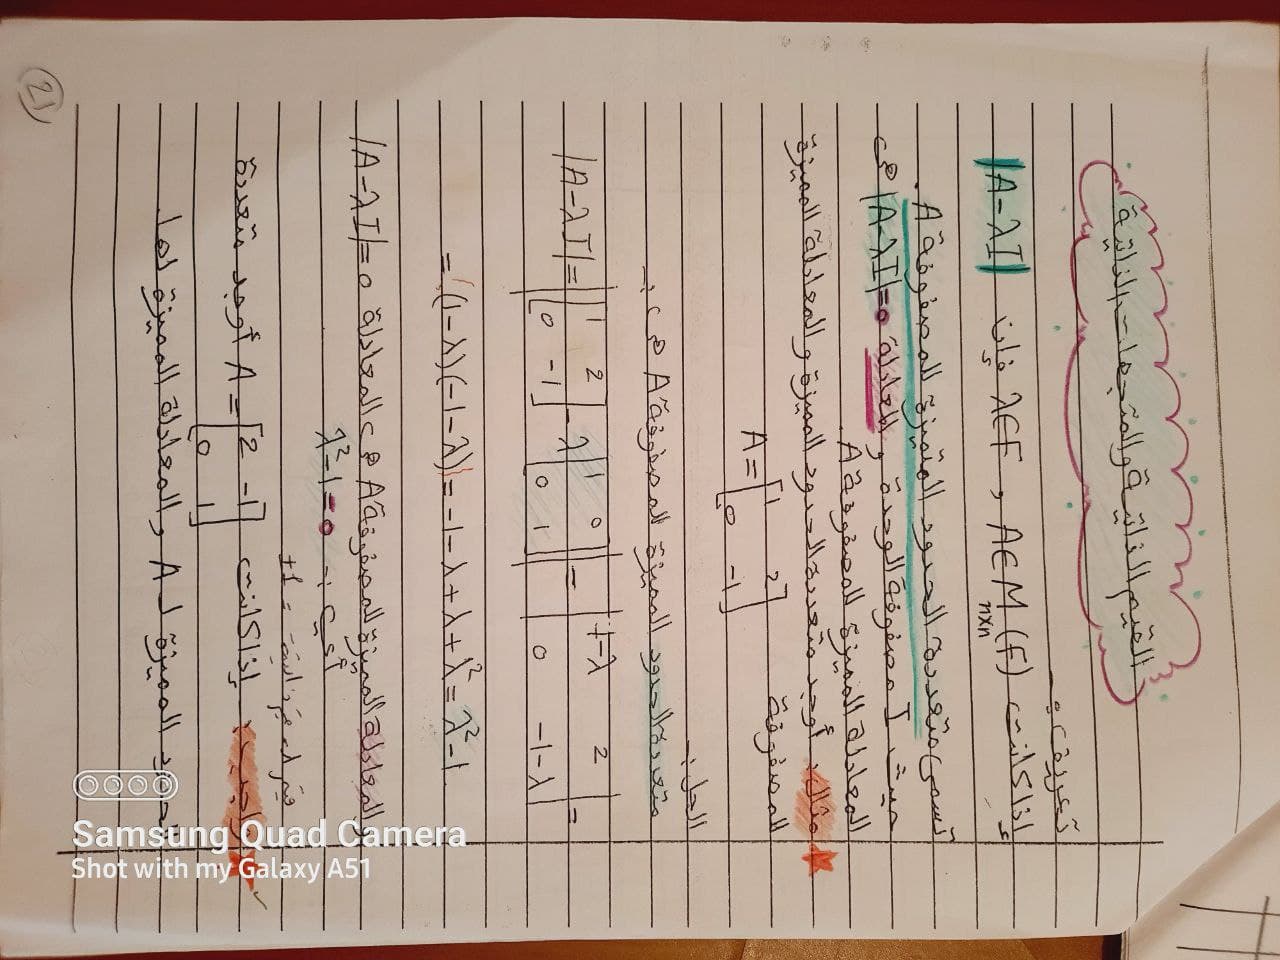 القيم الذاتية والمتجهات الذاتية
تعريف :-
إذا كانت A∈M_{n×n}(F) , λ∈F فإن |A-λI|
تسمى متعددة الحدود المتميزة للمصفوفة A .
حيث I مصفوفة الوحدة و المعادلة |A-λI|=0 هى
المعادلة المميزة للمصفوفة A.
مثال: أوجد متعددة الحدود المميزة والمعادلة المميزة
للمصفوفة
A = [1 2
0 -1]
الحل :-
متعددة الحدود المميزة للمصفوفة A هى :-
|A-λI| = |[1 2; 0 -1] - λ[1 0; 0 1]| = |1-λ 2; 0 -1-λ| =
= (1-λ)(-1-λ) = -1-λ+λ+λ² = λ²-1
والمعادلة المميزة للمصفوفة A هى المعادلة |A-λI|=0
أي :- λ²-1=0
= ±1
واجب: إذا كانت A = [2 -1; 0 1] أوجد متعددة
الحدود المميزة لـ A والمعادلة المميزة لها.
21
Samsung Quad Camera
Shot with my Galaxy A51